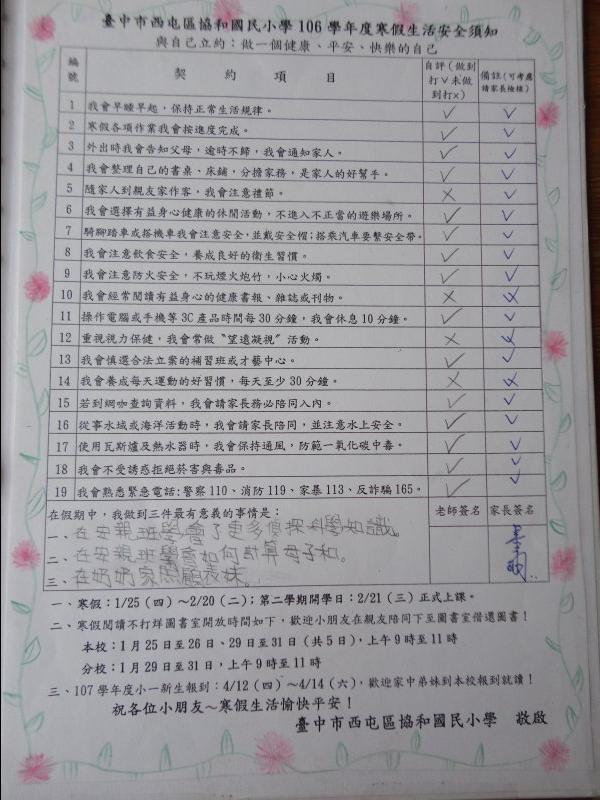 臺中市西屯區協和國民小學 106 學年度寒假生活安全須知
與自己立約：做一個健康、平安、快樂的自己
編號 契約項目 自評（做到打ˇ未做到打×） 備註（可考慮請家長檢核）
1 我會早睡早起，保持正常生活規律。 ✓ ✓
2 寒假各項作業我會按進度完成。 ✓ ✓
3 外出時我會告知父母，逾時不歸，我會通知家人。 ✓ ✓
4 我會整理自己的書桌、床鋪，分擔家務，是家人的好幫手。 ✓ ✓
5 隨家人到親友家作客，我會注意禮節。 × ✓
6 我會選擇有益身心健康的休閒活動，不進入不正當的遊樂場所。 ✓ ✓
7 騎腳踏車或搭機車我會注意安全，並戴安全帽；搭乘汽車要繫安全帶。 ✓ ✓
8 我會注意飲食安全，養成良好的衛生習慣。 ✓ ✓
9 我會注意防火安全，不玩煙火炮竹，小心火燭。 ✓ ✓
10 我會經常閱讀有益身心的健康書報、雜誌或刊物。 ×
11 操作電腦或手機等3C產品時間每30分鐘，我會休息10分鐘。 ✓ ✓
12 重視視力保健，我會常做〝望遠凝視〞活動。 ×
13 我會慎選合法立案的補習班或才藝中心。 ✓ ✓
14 我會養成每天運動的好習慣，每天至少30分鐘。 ×
15 若到網咖查詢資料，我會請家長務必陪同入內。 ✓ ✓
16 從事水域或海洋活動時，我會請家長陪同，並注意水上安全。 ✓ ✓
17 使用瓦斯爐及熱水器時，我會保持通風，防範一氧化碳中毒。 ✓ ✓
18 我會不受誘惑拒絕菸害與毒品。 ✓ ✓
19 我會熟悉緊急電話：警察110、消防119、家暴113、反詐騙165。 ✓ ✓
在假期中，我做到三件最有意義的事情是： 老師簽名 家長簽名
一、在安親班學會了更多偵探科學知識。
二、在安親班學會如何計算母子和。
三、在奶奶家照顧表妹。
一、寒假：1/25（四）～2/20（二）；第二學期開學日：2/21（三）正式上課。
二、寒假閱讀不打烊圖書室開放時間如下，歡迎小朋友在親友陪同下至圖書室借還圖書！
本校：1月25日至26日、29日至31日（共5日），上午9時至11時
分校：1月29日至31日，上午9時至11時
三、107學年度小一新生報到：4/12（四）～4/14（六），歡迎家中弟妹到本校報到就讀！
祝各位小朋友～寒假生活愉快平安！
臺中市西屯區協和國民小學 敬啟